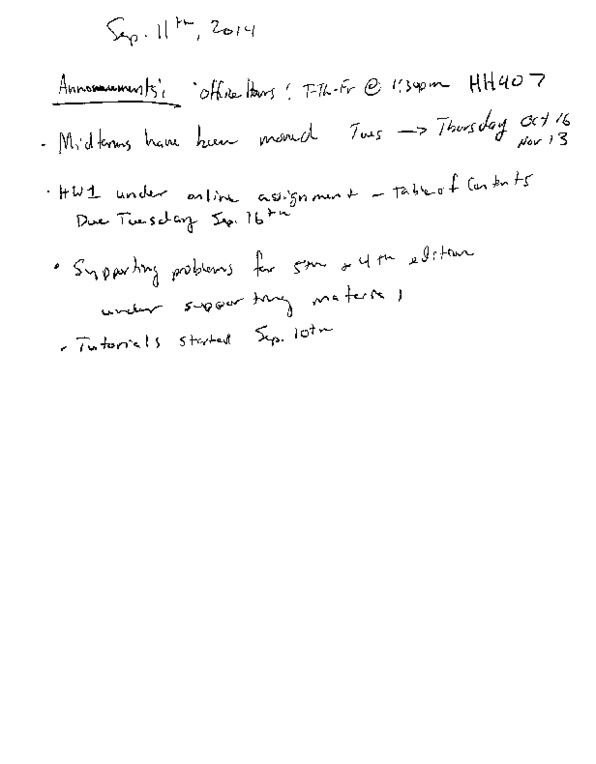 Sep. 11th, 2014
Announcements: Office Hours: T-Th-Fr @ 1:30pm HH407
· Midterms have been moved Tues → Thursday Oct 16
Nov 13
· HW1 under online assignment - Table of Contents
Due Tuesday Sep. 16th
· Supporting problems for 5th & 4th edition
under supporting material
· Tutorials started Sep. 10th